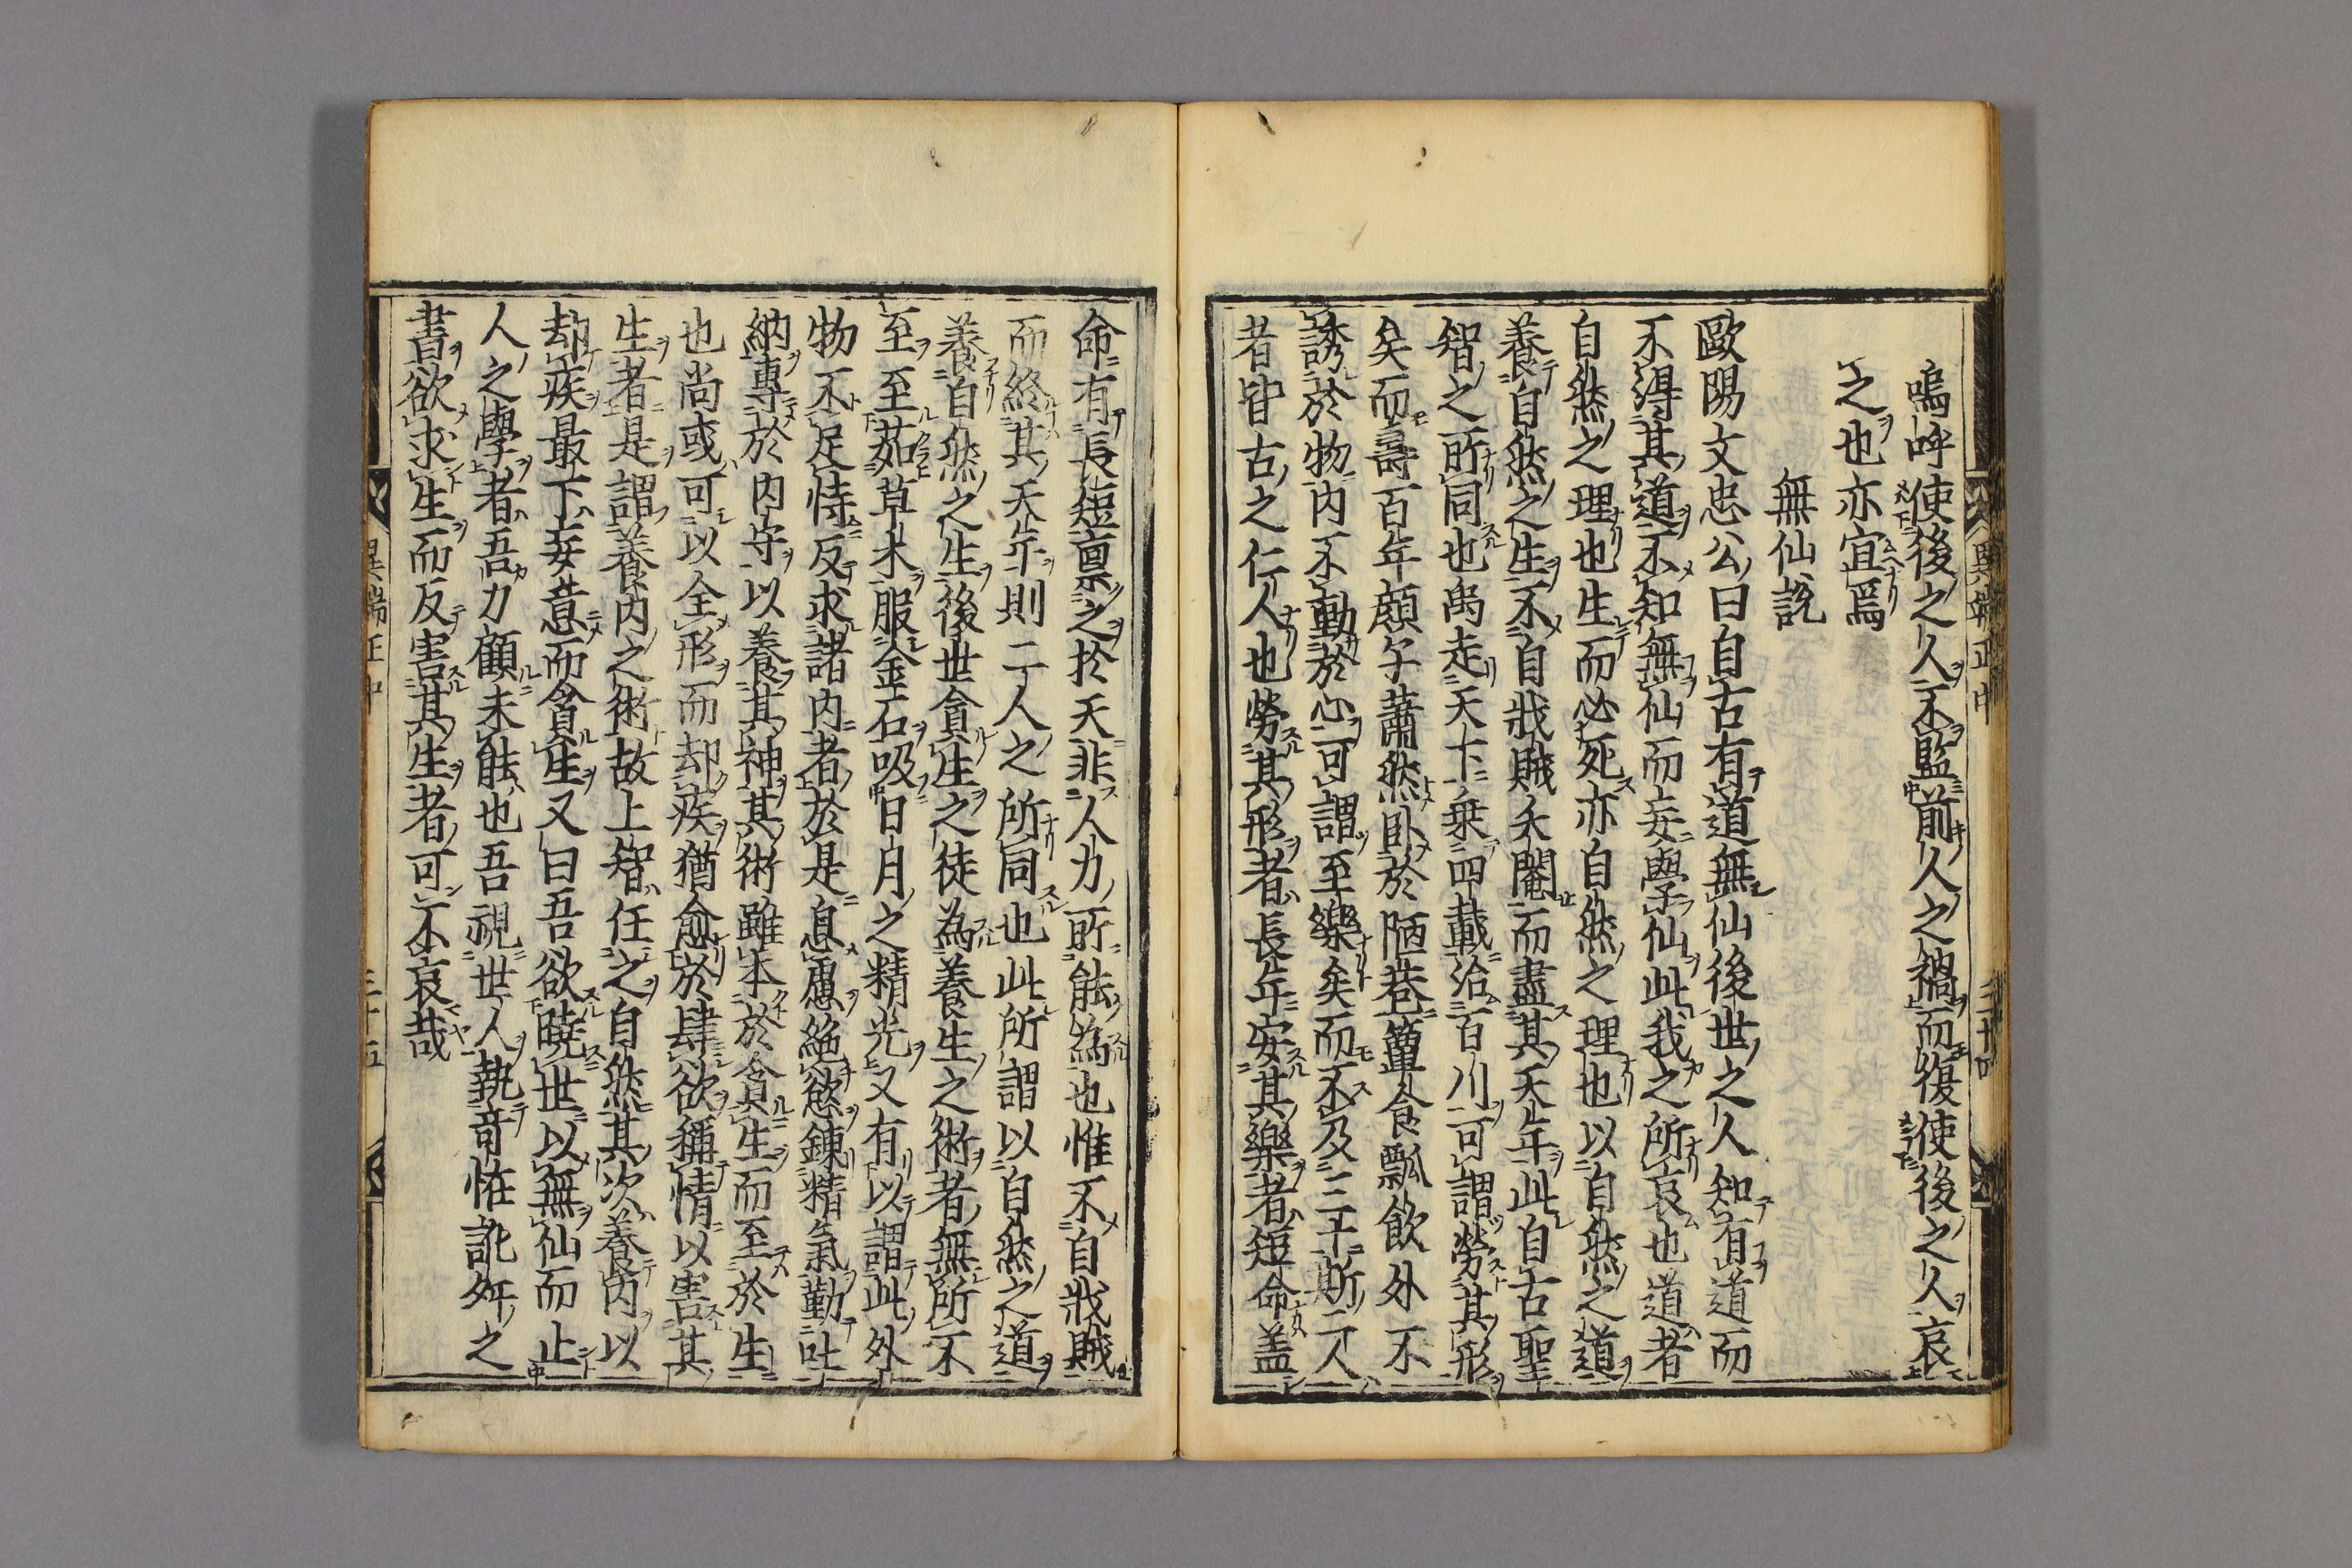 嗚呼使後之人不監前人之禍而復使後之人哀
之也亦宜焉
無仙説
歐陽文忠公曰自古有道無仙後世之人知有道而
不得其道不知無仙而妄學仙此我之所哀也道者
自然之理也生而必死亦自然之理也以自然之道
養自然之生不自戕賊夭閼而盡其天年此自古聖
智之所同也禹走天下乗四載治百川可謂勞其形
矣而壽百年顔子蕭然卧於陋巷簞食瓢飲外不
誘於物内不動於心可謂至樂矣而不及三十斯二人
者皆古之仁人也勞其形者長年安其樂者短命盖
命有長短稟之於天非人力所能為也惟不自戕賊
而終其天年則二人之所同也此所謂以自然之道
養自然之生後世貪生之徒為養生之術者無所不
至至茹草木服金石吸日月之精光又有以謂此外
物不足恃反求諸内者於是息慮絶慾錬精氣勤吐
納專於内守以養其神其術雖本於貪生而至於生
也尚或可以全形而却疾猶愈於肆欲稱情以害其
生者是謂養内之術故上智任之自然其次養内以
却疾最下妄意而貪生又曰吾欲曉世以無仙而止
人之學者吾力顧未能也吾視世人執竒恠訛舛之
書欲求生而反害其生者可不哀哉
異端正中
三十四
異端正中
三十五